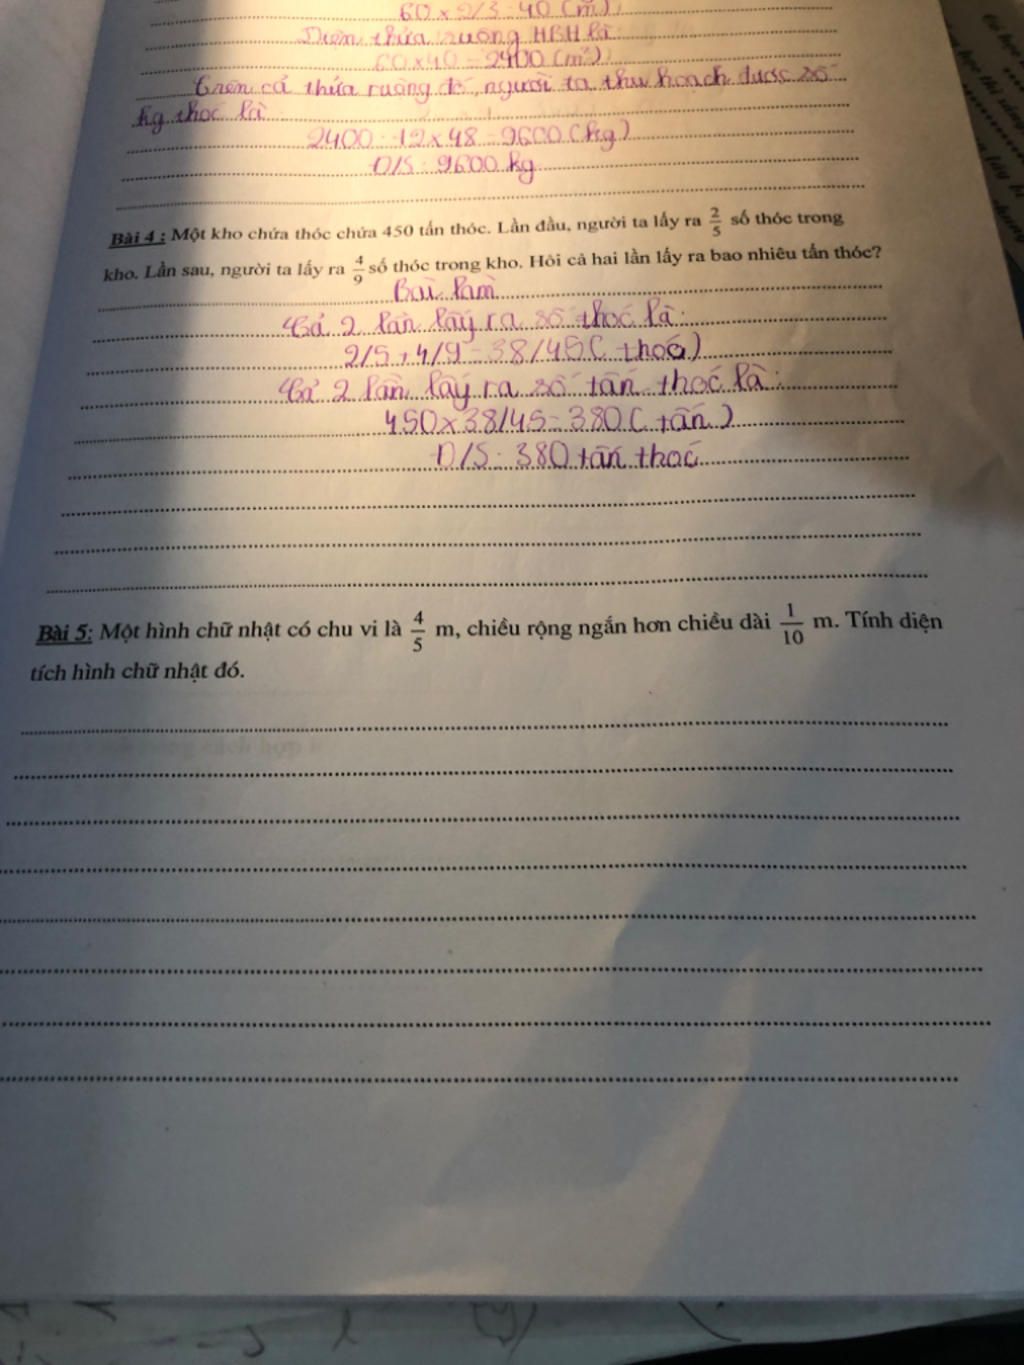 60 x 2/3 = 40 (m)
Diện thửa ruộng HBH là:
60x40 = 2400 (m²)
Trên cả thửa ruộng đó, người ta thu hoạch được số
kg thóc là:
2400 : 12 x 48 = 9600 (kg)
Đ/S: 9600 kg
Bài 4 : Một kho chứa thóc chứa 450 tấn thóc. Lần đầu, người ta lấy ra 2/5 số thóc trong
kho. Lần sau, người ta lấy ra 4/9 số thóc trong kho. Hỏi cả hai lần lấy ra bao nhiêu tấn thóc?
Bài làm
Cả 2 lần lấy ra số thóc là:
2/5 + 4/9 = 38/45 ( thóc)
Cả 2 lần lấy ra số tấn thóc là:
450 x 38/45 = 380 ( tấn )
Đ/S: 380 tấn thóc
Bài 5: Một hình chữ nhật có chu vi là 4/5 m, chiều rộng ngắn hơn chiều dài 1/10 m. Tính diện
tích hình chữ nhật đó.